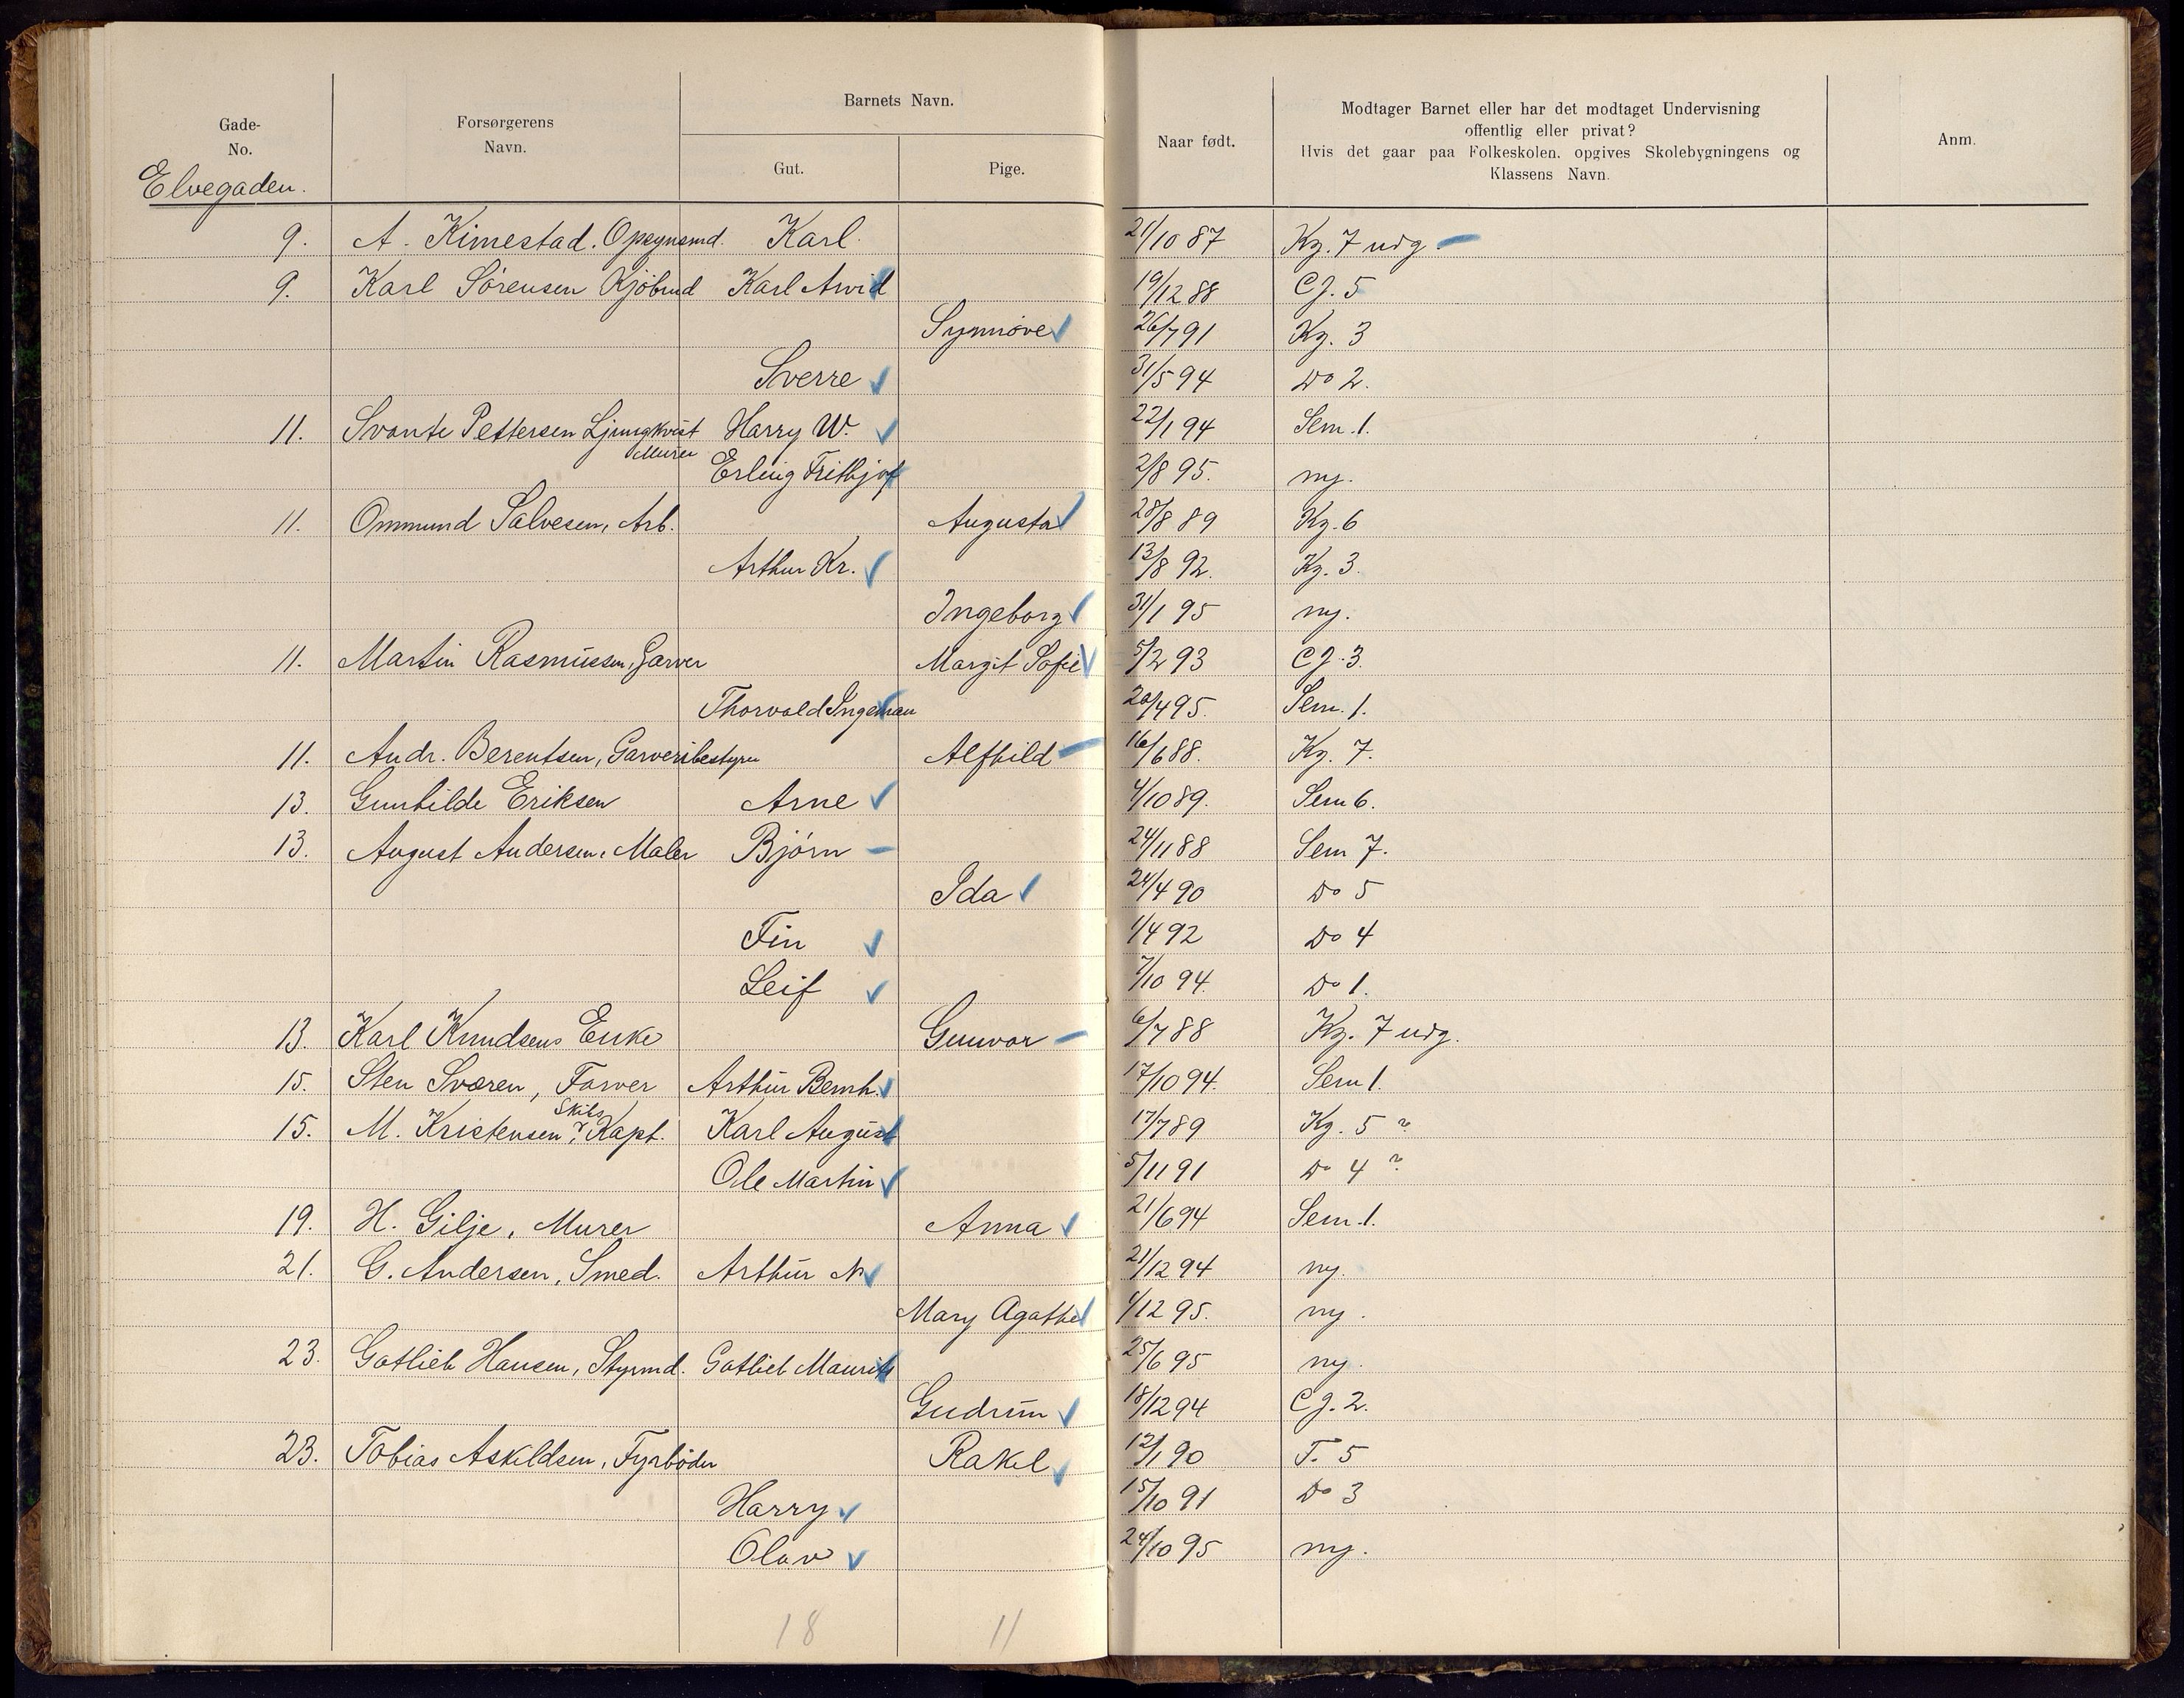 Gade-
No.
Forsørgerens
Navn.
Barnets Navn.
Gut.
Pige.
Naar født.
Modtager Barnet eller har det modtaget Undervisning
offentlig eller privat?
Hvis det gaar paa Folkeskolen, opgives Skolebygningens og
Klassens Navn.
Anm.
Elvegaden.
9. A. Kimestad. Opsynsmd. Karl. 21/10 87 Kg. 7 udg.
9. Karl Sörensen Kjöbmd Karl Arvid 19/12 88 CJ. 5
Synnöve 26/7 91 Kg. 3
Sverre 31/5 94 Do 2.
11. Svante Pettersen Ljungkvist Harry W. 22/1 94 Sem. 1.
Murer Erling Frithjof 2/8 95. ny.
11. Ommund Salvesen, Arb. Augusta 28/8 89 Kg. 6
Arthur Kr. 13/8 92. Kg. 3.
Ingeborg 31/1 95 ny.
11. Martin Rasmussen, Garver Margit Sofie 5/2 93 CJ. 3.
Thorvald Ingeman 20/4 95. Sem. 1.
11. Andr. Berentsen, Garveribestyrer Alfhild 16/6 88. Kg. 7.
13. Gunhilde Eriksen Arne 4/10 89. Sem 6.
13. August Andersen, Maler Björn 24/11 88 Sem 7.
Ida 24/4 90 Do 5
Fin 1/4 92 Do 4
Leif 7/10 94. Do 1.
13. Karl Knudsens Enke Gunvor 6/7 88 Kg. 7 udg.
15. Sten Sværen, Farver Arthur Bernh. 17/10 94. Sem 1.
Skibs
15. M. Kristensen ? Kapt. Karl August 17/7 89 Kg. 5 ?
Ole Martin 5/11 91 Do 4 ?
19. H. Gilje, Murer Anna 21/6 94 Sem. 1.
21. G. Andersen, Smed. Arthur N. 21/12 94 ny.
Mary Agathe 1/12 95. ny.
23. Gotlieb Hansen, Styrmd. Gotlieb Maurits 25/6 95 ny.
Gudrun 18/12 94 CJ. 2.
23. Tobias Askildsen, Fyrböder Rakel 12/1 90 T. 5
Harry 15/10 91 Do 3
Olav 24/10 95 ny.
18 11